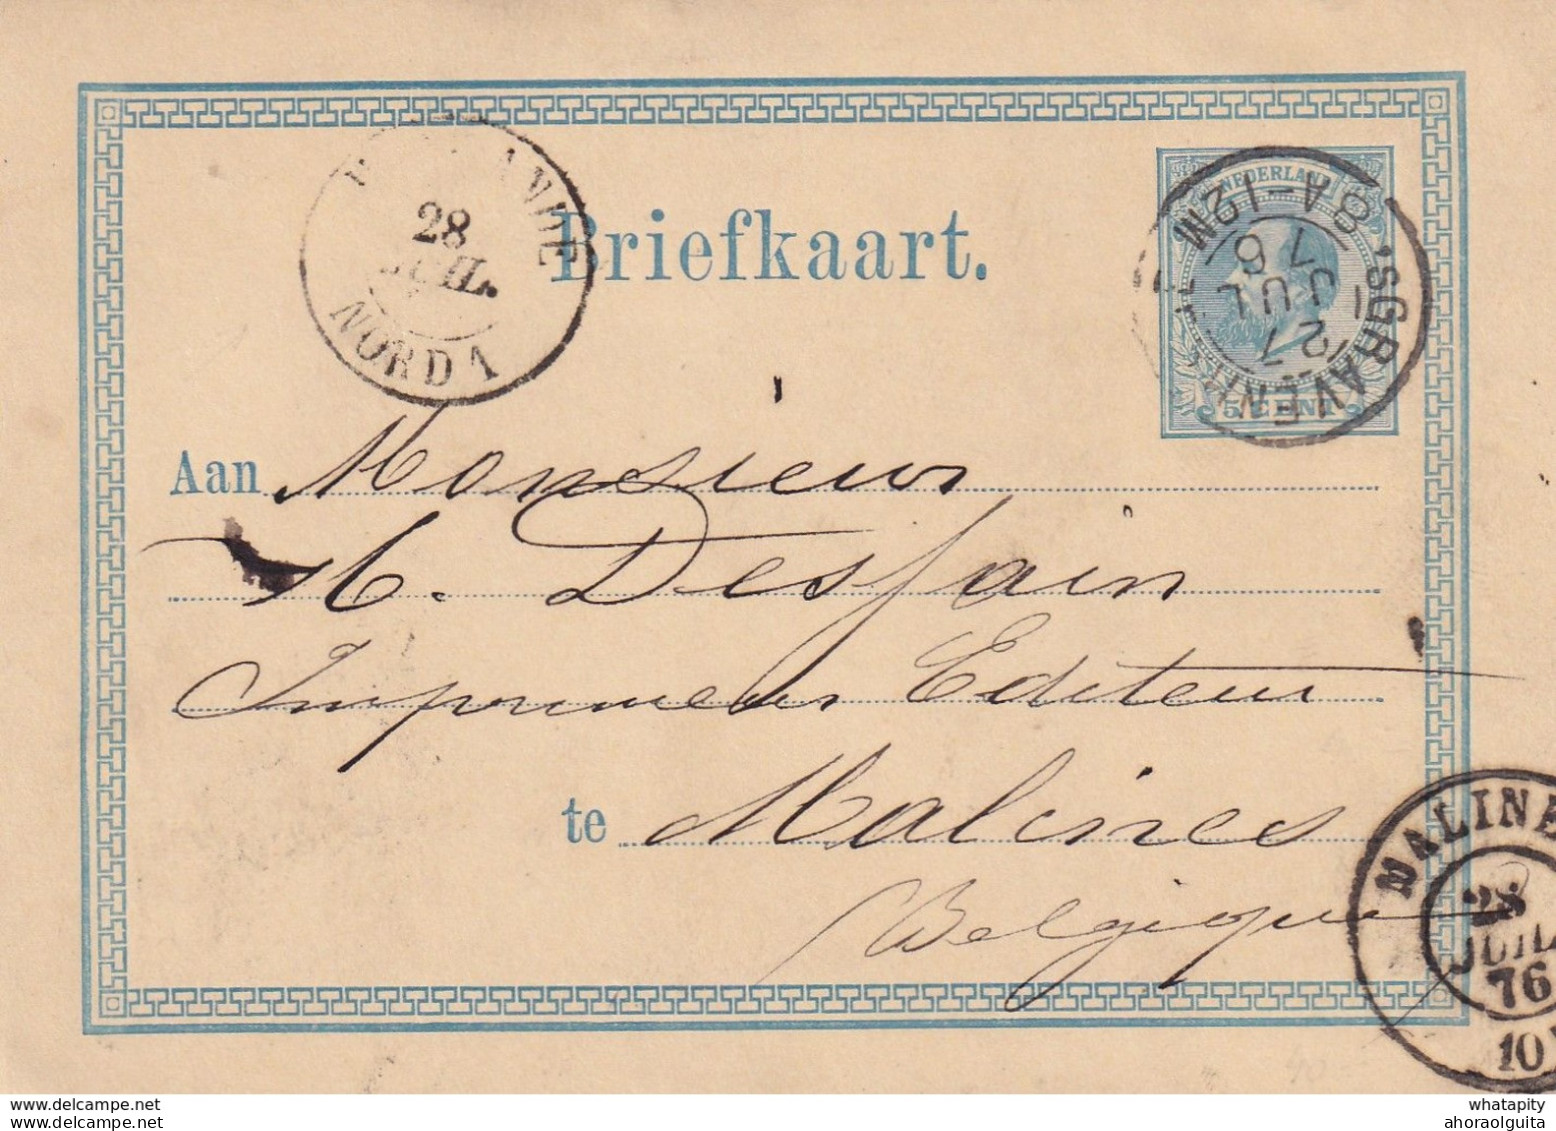 NEDERLAND
8A-12M
'SGRAVENH
27
JUL
76
5 CENT
28
JUIL.
NORD 1
Briefkaart.
Aan Monsieur
H. Dessain
Imprimeur Editeur
te Malines
Belgique
MALINE
28
JUIL
76
10
www.delcampe.net
whatapity
ahoraolguita